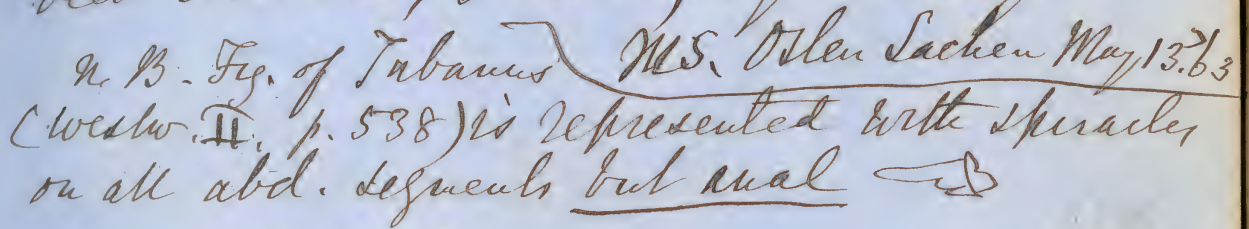 N.B. Fig. of Tabanus
MS. Osten Sacken May 13. 63
(Westw. II. p. 538) is represented with spiracles
on all abd. segments but anal